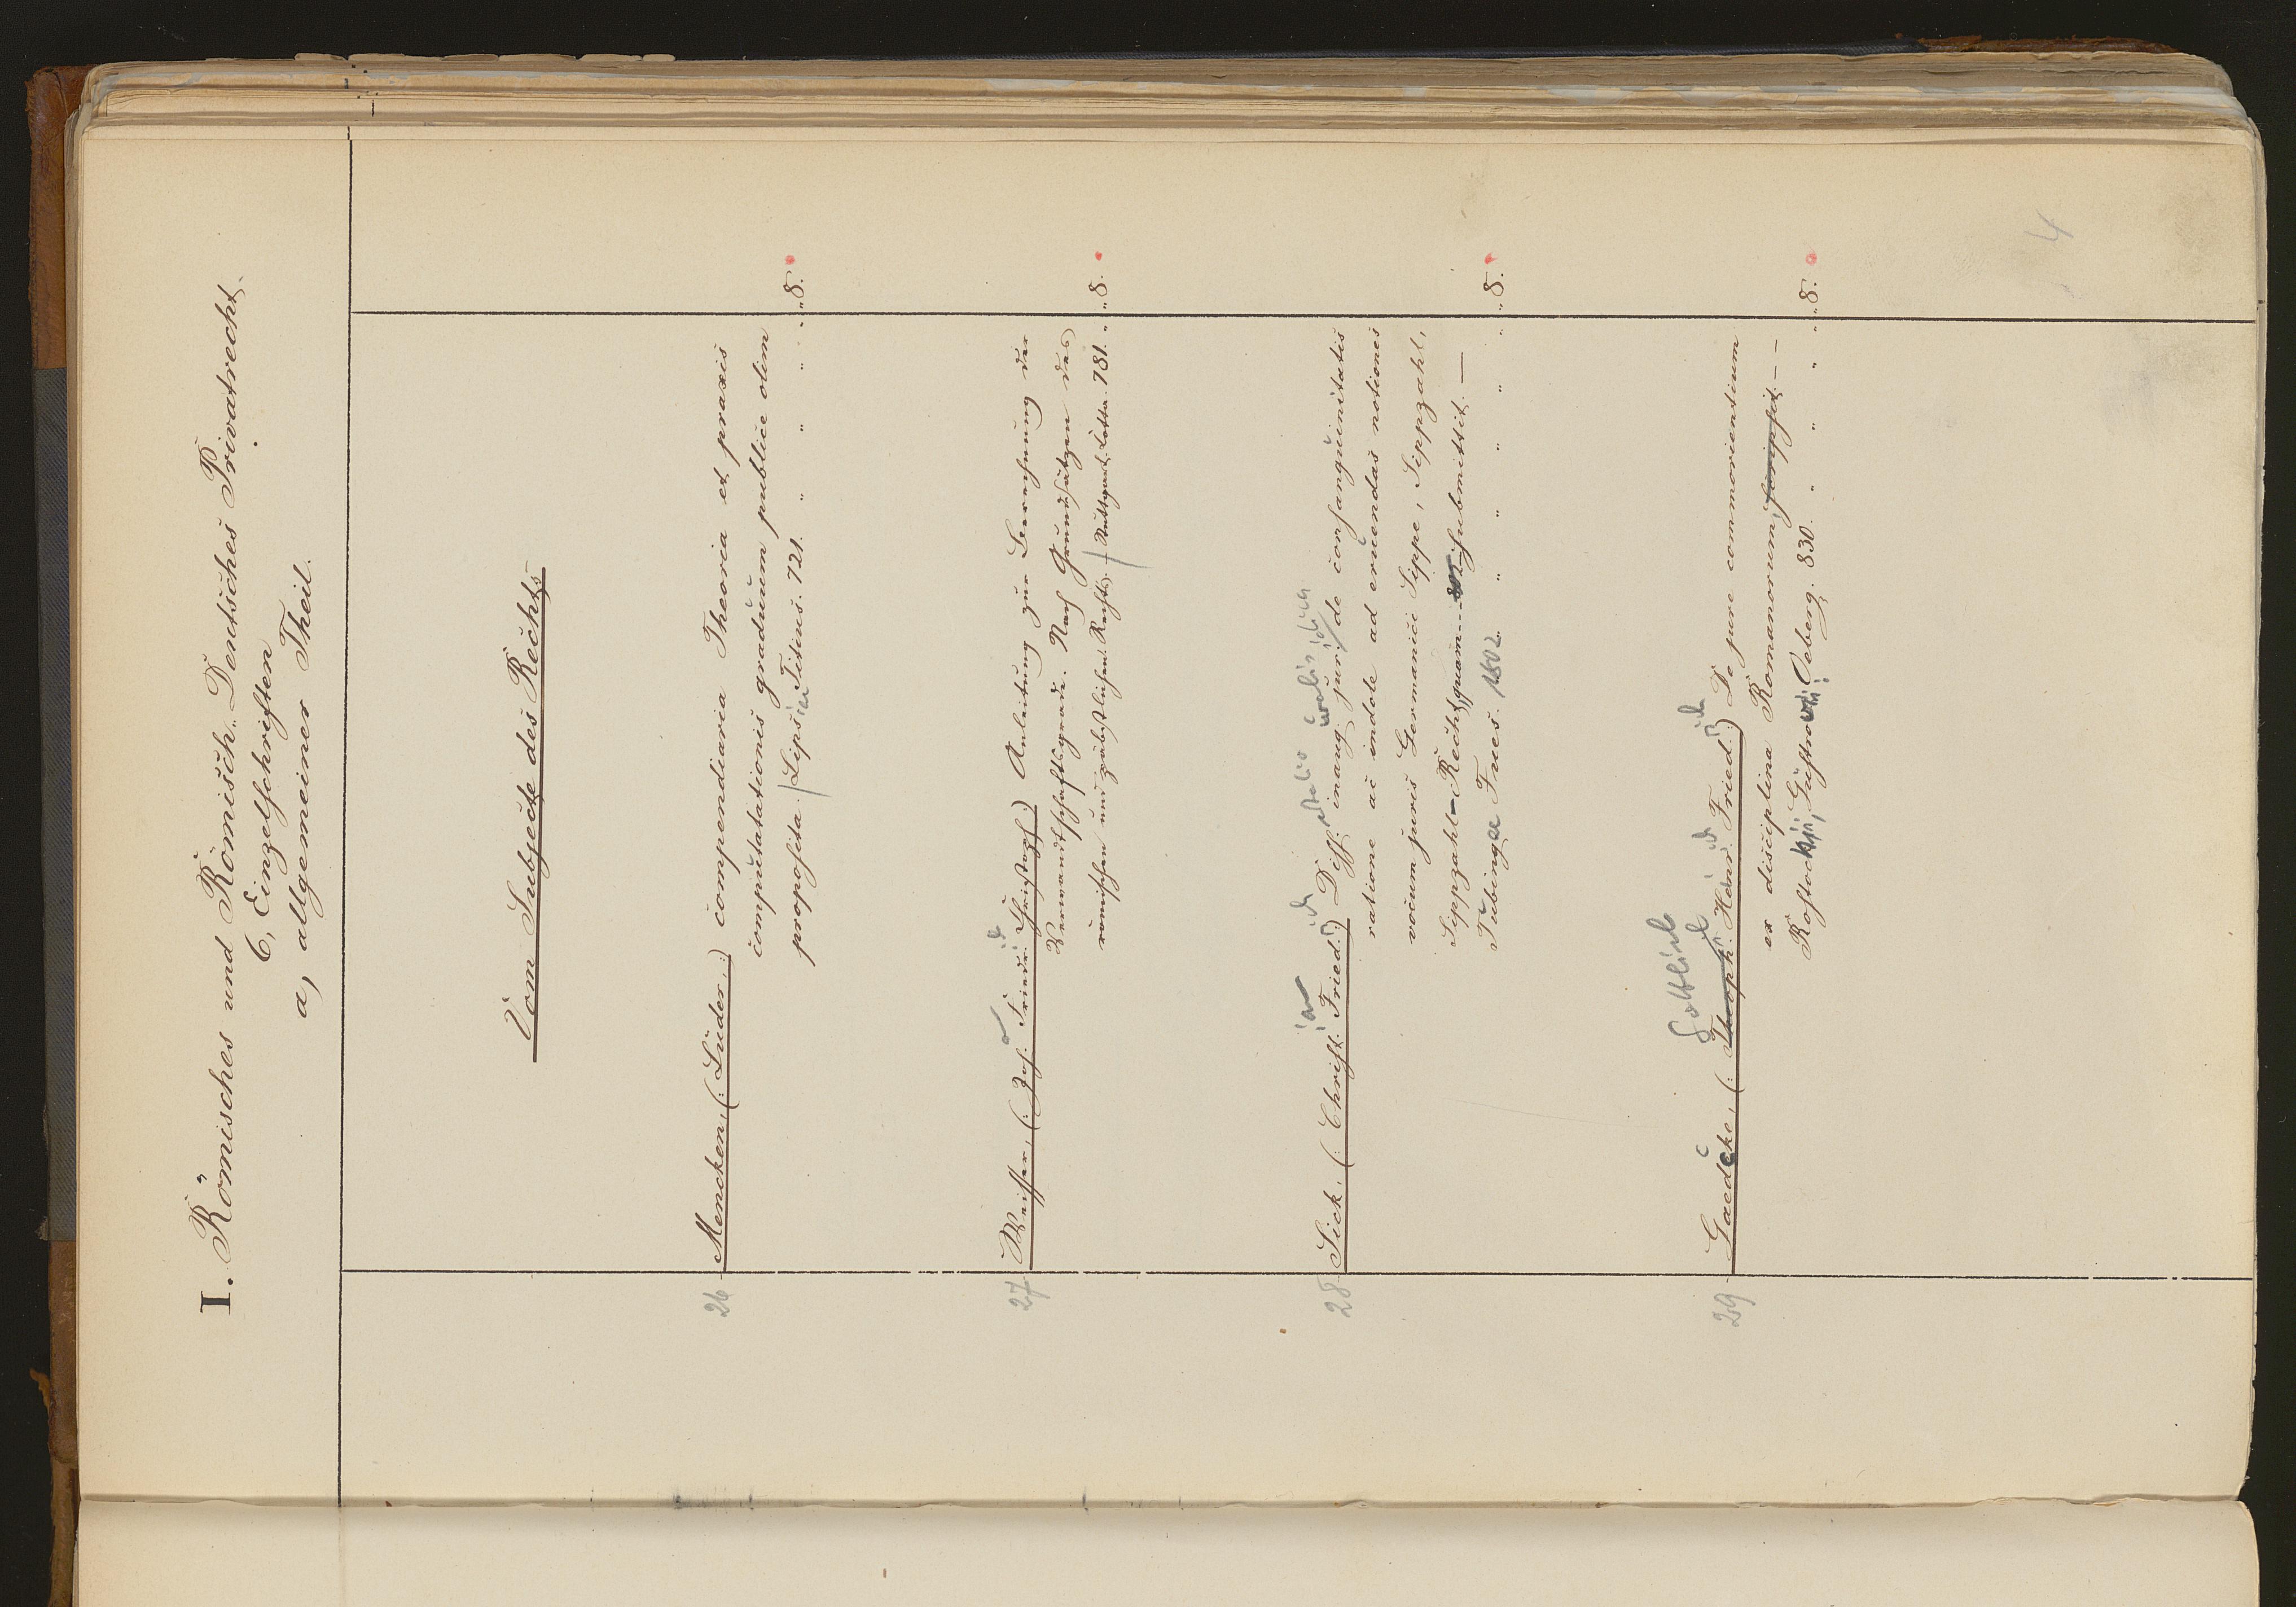 I. Römisches und Römisch-Deutsches Privatrecht.
C, Einzelschriften
a, allgemeiner Theil.
4
Vom Subjecte des Rechts
26 Mencken, (: Lüder, :) compendiaria Theoria et praxis
computationis graduum publice olim
proposita. / Lipsiae Titius. 721. " " " " 8.
27 Weisser, (: Joh. Friedr. Christoph :) Anleitung zur Berechnung der
Verwandtschaftsgrade. Nach Grundsätzen des
römischen und päbstlichen Rechts. / Stuttgart. Cotta. 781. " " 8.
28 Sick, (: Christian Fried. :) Diss. inaug. juridica de consanguinitatis
ratione ac indole ad eruendas notiones
vocum juris Germanici Sippe, Sippzahl,
Sippzahl-Recht, quam --- submittit. —
Tubingae Fues. 1802. " " " " " 8.
Gottlieb
29 Gaedcke, (: Theoph. Heinr. Fried. :) De jure commorientium
ex disciplina Romanorum, scripsit — —
Rostochii, Güstrow: Oeberg. 830. " " " " 8.